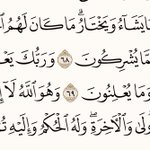 يَشَآءُ وَيَخْتَارُۗ مَا كَانَ لَهُمُ
مَّا يُشْرِكُونَ ٦٨ وَرَبُّكَ يَعْ
وَمَا يُعْلِنُونَ ٦٩ وَهُوَ ٱللَّهُ لَآ
ولَىٰ وَٱلْأَخِرَةِۖ وَلَهُ ٱلْحُكْمُ وَإِلَيْهِ تُ